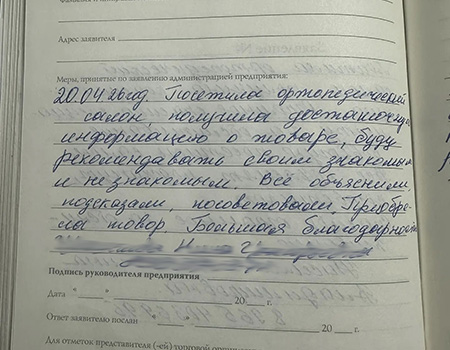 Адрес заявителя
Меры, принятые по заявлению администрацией предприятия:
20.04.26год. Посетила ортопедический
салон, получила достаточную
информацию о товаре, буду
рекомендавать своим знакомым
и не знакомым. Всё объяснили,
подсказали, посоветовали. Приобре-
ла товар. Большая благодарность
Подпись руководителя предприятия
Дата " " 20 г.
Ответ заявителю послан " " 20 г.
Для отметок представителя (-ей) торговой